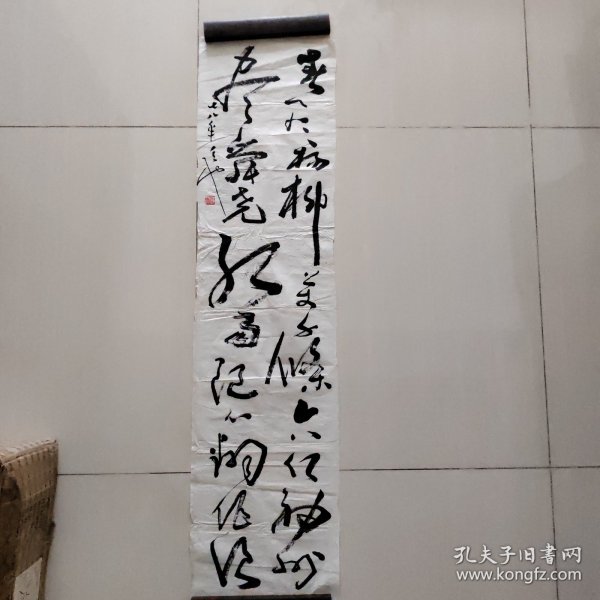 春风杨柳万千條六亿神州
尽舜尧红雨随心翻作浪
七八年
孔夫子旧书网
www.kongfz.com